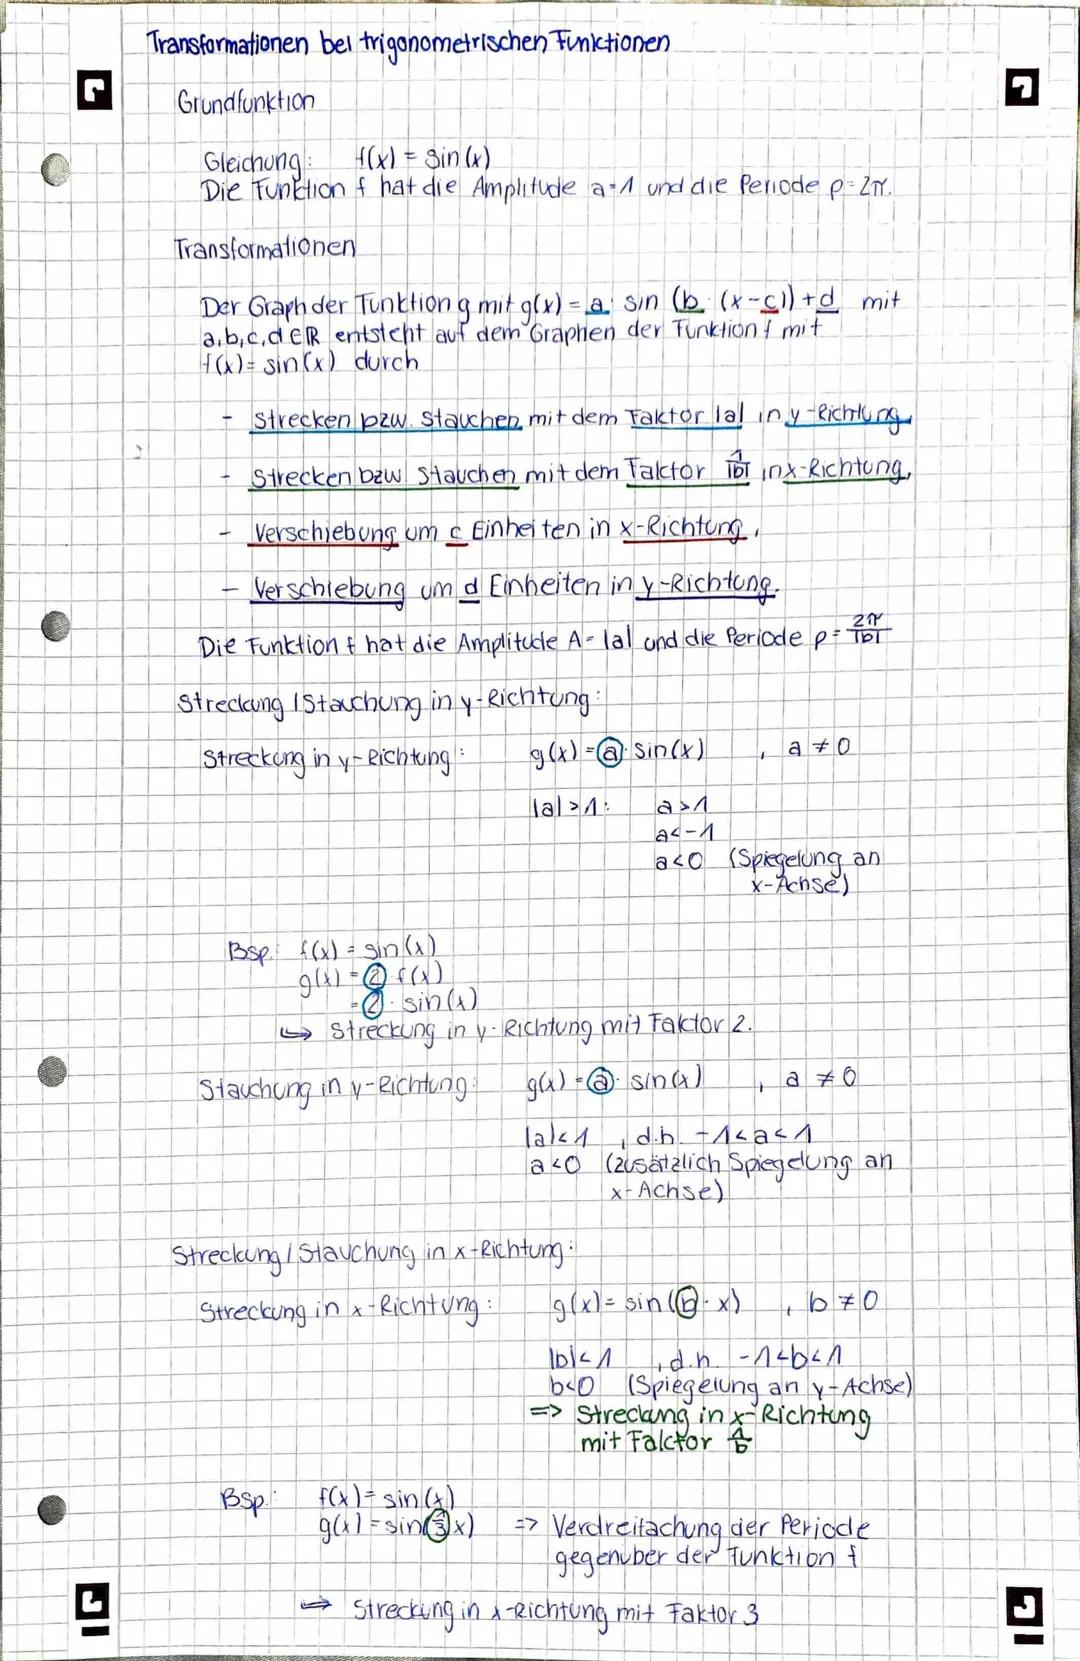 Transformationen bei trigonometrischen Funktionen
Grundfunktion
Gleichung: f(x) = sin(x)
Die Funktion f hat die Amplitude a=1 und die Periode p=2π.
Transformationen
Der Graph der Funktion g mit g(x) = a · sin (b · (x-c)) + d mit
a,b,c,d ∈ ℝ entsteht auf dem Graphen der Funktion f mit
f(x) = sin(x) durch
- Strecken bzw. Stauchen mit dem Faktor |a| in y-Richtung,
- Strecken bzw. Stauchen mit dem Faktor 1/|b| in x-Richtung,
- Verschiebung um c Einheiten in x-Richtung,
- Verschiebung um d Einheiten in y-Richtung.
Die Funktion f hat die Amplitude A = |a| und die Periode p = 2π/|b|
Streckung / Stauchung in y-Richtung:
Streckung in y-Richtung: g(x) = a · sin(x) , a ≠ 0
|a| > 1: a > 1
a < -1
a < 0 (Spiegelung an
x-Achse)
Bsp.: f(x) = sin(x)
g(x) = 2 f(x)
= 2 · sin(x)
↳ Streckung in y-Richtung mit Faktor 2.
Stauchung in y-Richtung: g(x) = a · sin(x) , a ≠ 0
|a| < 1 , d.h. -1 < a < 1
a < 0 (zusätzlich Spiegelung an
x-Achse)
Streckung / Stauchung in x-Richtung:
Streckung in x-Richtung: g(x) = sin(b · x) , b ≠ 0
|b| < 1 , d.h. -1 < b < 1
b < 0 (Spiegelung an y-Achse)
=> Streckung in x-Richtung
mit Faktor 1/b
Bsp.: f(x) = sin(x)
g(x) = sin(1/3 x) => Verdreifachung der Periode
gegenüber der Funktion f
↳ Streckung in x-Richtung mit Faktor 3